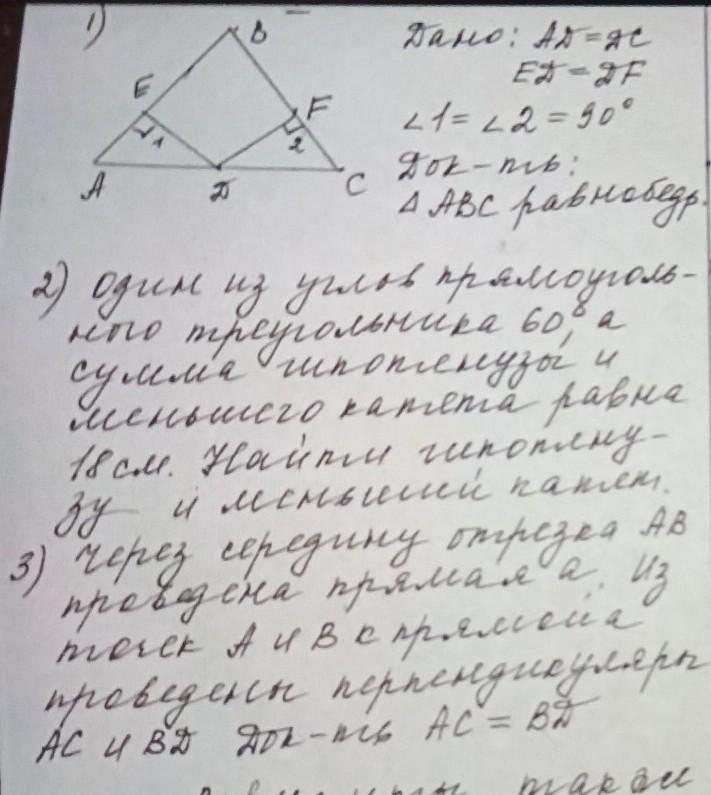 1)
B
E
F
1
2
A
D
C
Дано: AD=DC
ED=DF
∠1=∠2=90°
Док-ть:
△ABC равнобедр.
2) один из углов прямоуголь-
ного треугольника 60°, а
сумма гипотенузы и
меньшего катета равна
18 см. Найти гипотену-
зу и меньший катет.
3) Через середину отрезка AB
проведена прямая a. Из
точек A и B к прямой a
проведены перпендикуляры
AC и BD Док-ть AC=BD